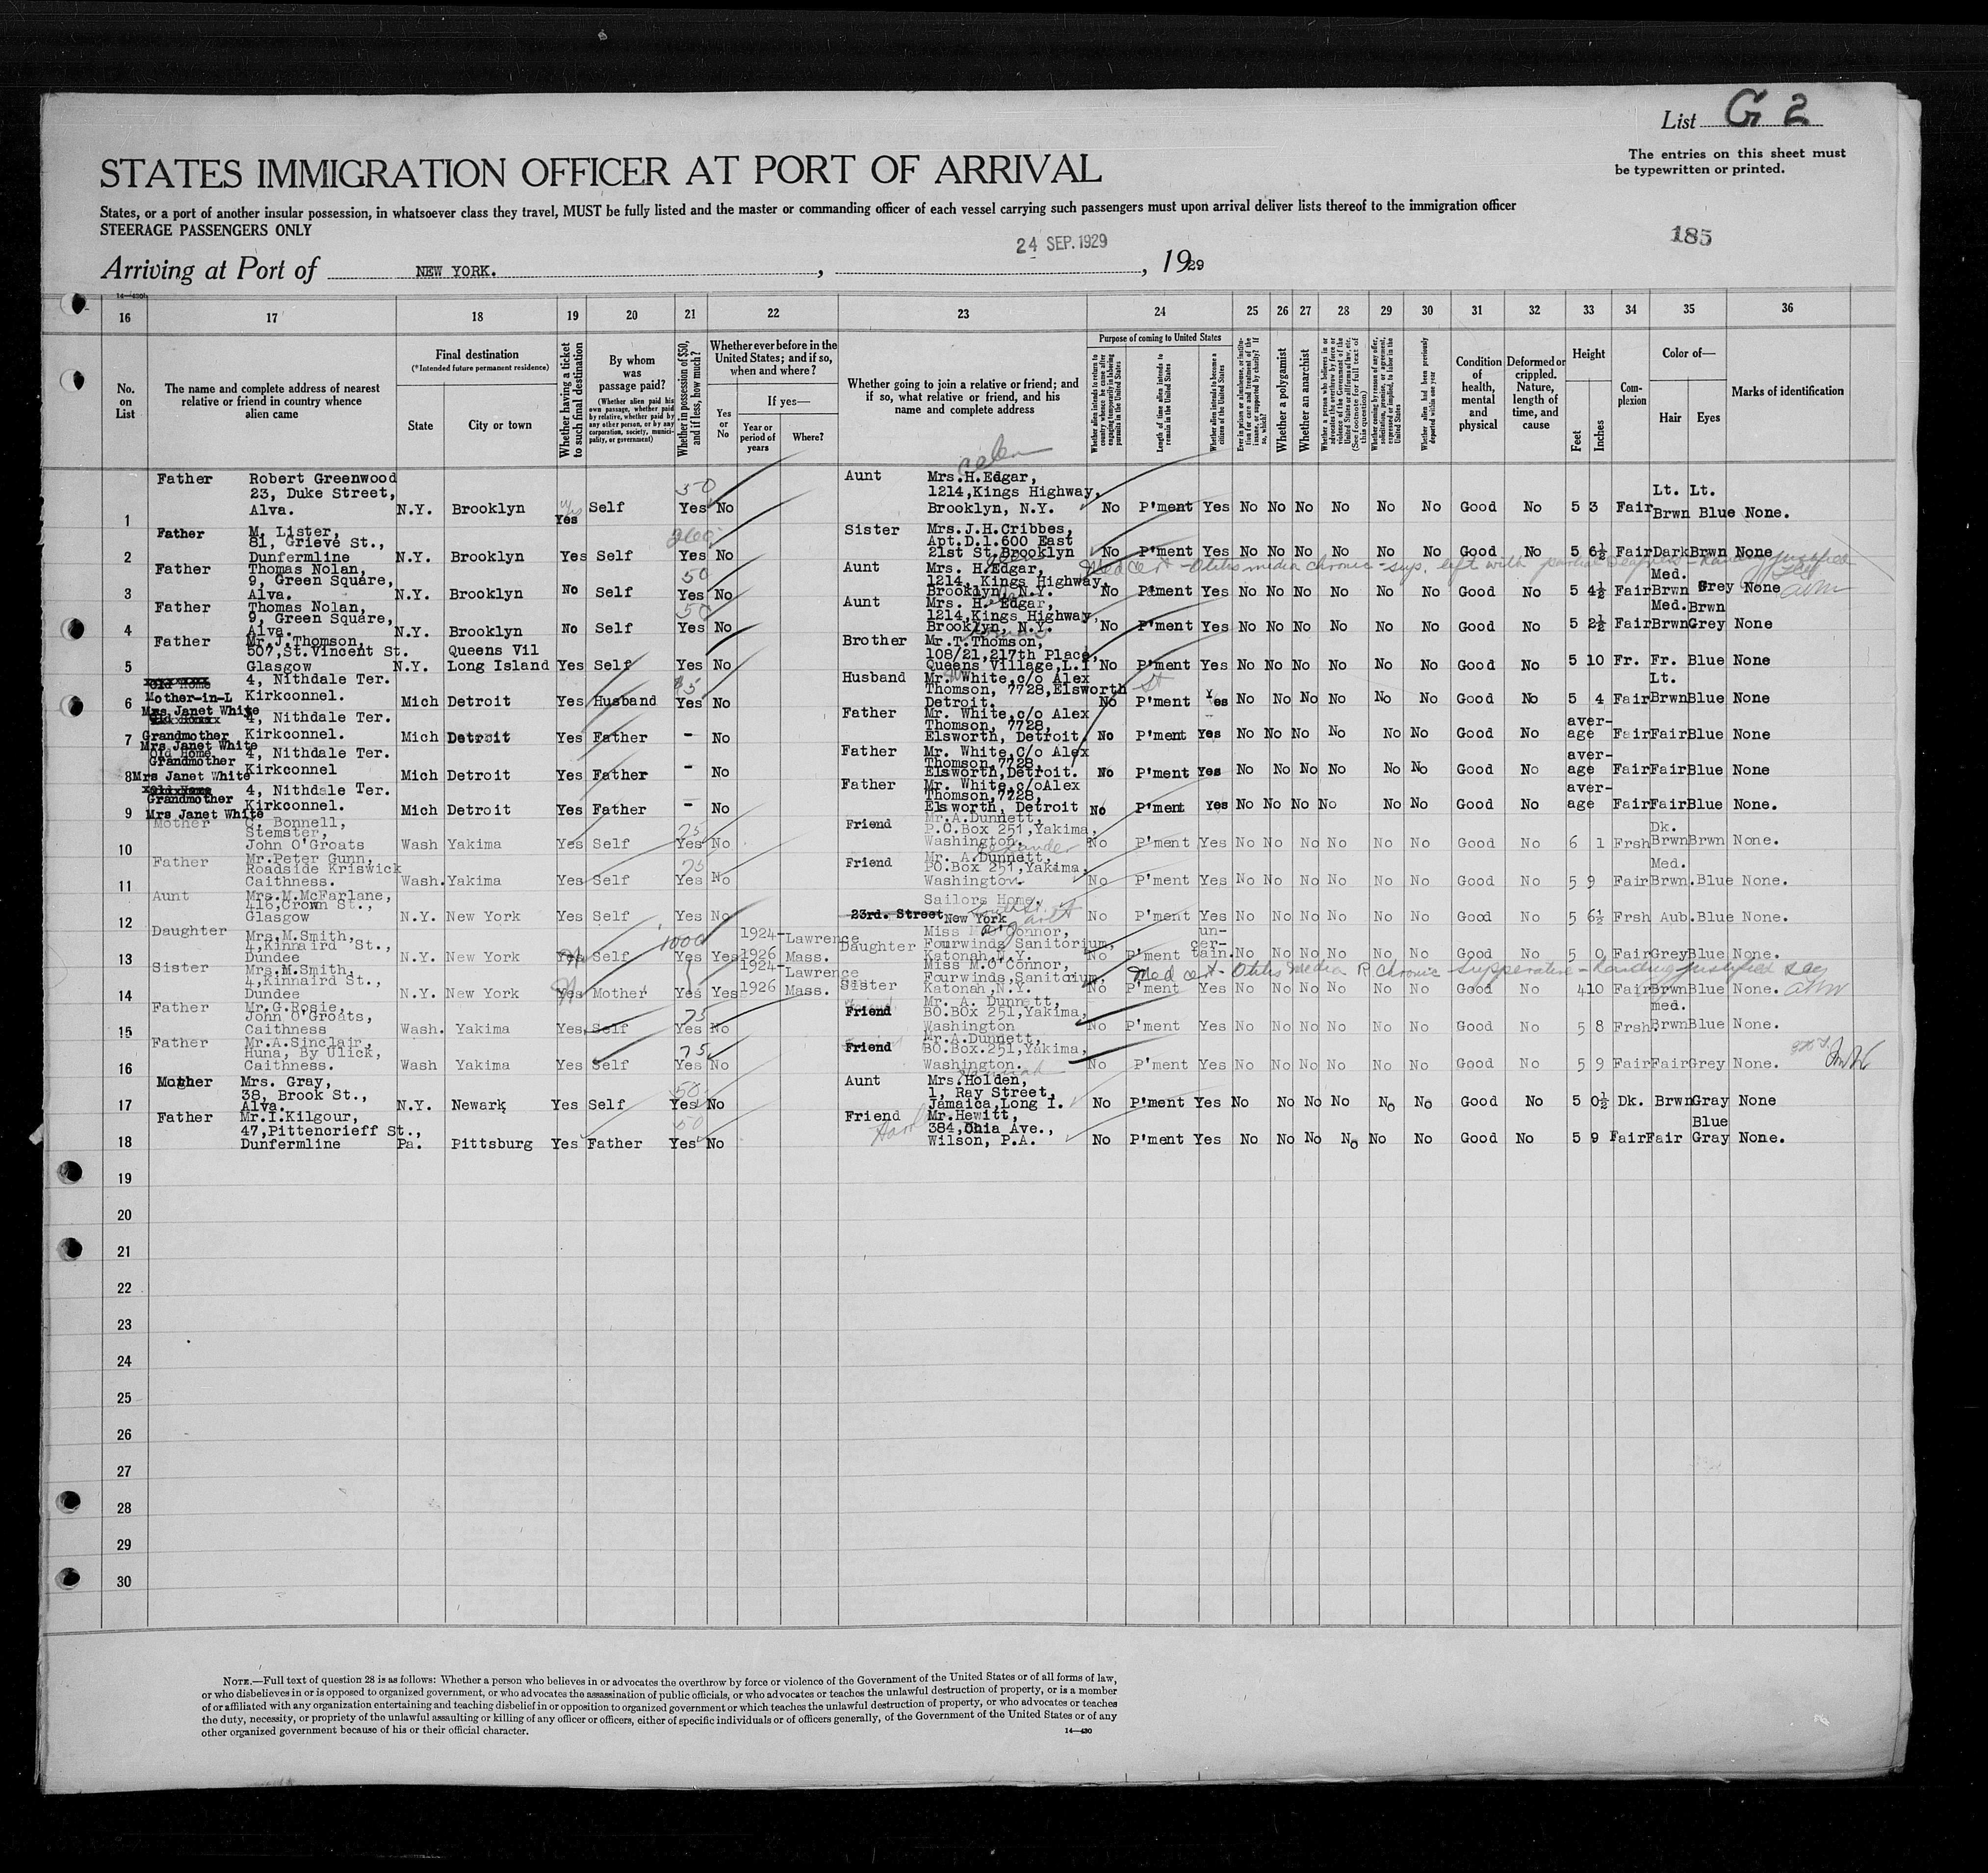 List G 2
The entries on this sheet must
be typewritten or printed.
STATES IMMIGRATION OFFICER AT PORT OF ARRIVAL
States, or a port of another insular possession, in whatsoever class they travel, MUST be fully listed and the master or commanding officer of each vessel carrying such passengers must upon arrival deliver lists thereof to the immigration officer
STEERAGE PASSENGERS ONLY
185
24 SEP. 1929
Arriving at Port of NEW YORK. , , 1929
14—430
16 17 18 19 20 21 22 23 24 25 26 27 28 29 30 31 32 33 34 35 36
No. on List
The name and complete address of nearest relative or friend in country whence alien came
Final destination
(*Intended future permanent residence)
State
City or town
Whether having a ticket to such final destination
By whom was passage paid?
(Whether alien paid his own passage, whether paid by relative, whether paid by any other person, or by any corporation, society, municipality, or government)
Whether in possession of $50, and if less, how much?
Whether ever before in the United States; and if so, when and where?
Yes or No
If yes—
Year or period of years
Where?
Whether going to join a relative or friend; and if so, what relative or friend, and his name and complete address
Purpose of coming to United States
Whether alien intends to return to country whence he came after engaging temporarily in laboring pursuits in the United States
Length of time alien intends to remain in the United States
Whether alien intends to become a citizen of the United States
Ever in prison or almshouse, or institution for care and treatment of the insane, or supported by charity? If so, which?
Whether a polygamist
Whether an anarchist
Whether a person who believes in or advocates the overthrow by force or violence of the Government of the United States or all forms of law, etc. (See footnote for full text of this question)
Whether coming by reason of any offer, solicitation, promise, or agreement, expressed or implied, to labor in the United States
Whether alien had been previously deported within one year
Condition of health, mental and physical
Deformed or crippled. Nature, length of time, and cause
Height
Feet
Inches
Complexion
Color of—
Hair
Eyes
Marks of identification
1 Father Robert Greenwood 23, Duke Street, Alva. N.Y. Brooklyn Yes Self 50 Yes No Aunt Mrs.H.Edgar, 1214,Kings Highway, Brooklyn, N.Y. No P'ment Yes No No No No No No Good No 5 3 Fair Lt. Brwn Lt. Blue None.
2 Father M. Lister, 81, Grieve St., Dunfermline N.Y. Brooklyn Yes Self Yes No Sister Mrs.J.H.Cribbes, Apt.D.1.600 East 21st St.Brooklyn No P'ment Yes No No No No No No Good No 5 6½ Fair Dark Brwn None
Med cert - Otitis media chronic - sup. left with partial deafness - Landing justified
3 Father Thomas Nolan, 9, Green Square, Alva. N.Y. Brooklyn No Self 50 Yes No Aunt Mrs. H.Edgar, 1214, Kings Highway, Brooklyn, N.Y. No P'ment Yes No No No No No No Good No 5 4½ Fair Med. Brwn Grey None
4 Father Thomas Nolan, 9, Green Square, Alva. N.Y. Brooklyn No Self 50 Yes No Aunt Mrs. H. Edgar, 1214,Kings Highway, Brooklyn, N.Y. No P'ment Yes No No No No No No Good No 5 2½ Fair Med.Brwn Brwn Grey None
5 Father Mr.J.Thomson, 507,St.Vincent St. Glasgow N.Y. Queens Vil Long Island Yes Self Yes No Brother Mr.T.Thomson, 108/21,217th Place, Queens Village,L.I No P'ment Yes No No No No No No Good No 5 10 Fr. Fr. Blue None
6 Old Home Mother-in-L Mrs Janet White 4, Nithdale Ter. Kirkconnel. Mich Detroit Yes Husband $5 Yes No Husband Mr. White,c/o Alex Thomson, 7728,Elsworth St Detroit. No P'ment Yes No No No No No No Good No 5 4 Fair Lt. Brwn Blue None
7 Grandmother Mrs Janet White 4, Nithdale Ter. Kirkconnel. Mich Detroit Yes Father - No Father Mr. White,c/o Alex Thomson, 7728, Elsworth, Detroit. No P'ment Yes No No No No No No Good No average Fair Fair Blue None
8 Old Home Grandmother Mrs Janet White 4, Nithdale Ter. Kirkconnel Mich Detroit Yes Father - No Father Mr. White,C/o Alex Thomson,7728, Elsworth,Detroit. No P'ment Yes No No No No No No Good No average Fair Fair Blue None
9 Grandmother Mrs Janet White 4, Nithdale Ter. Kirkconnel. Mich Detroit Yes Father - No Father Mr. White,c/oAlex Thomson,7728, Elsworth, Detroit No P'ment Yes No No No No No No Good No average Fair Fair Blue None.
10 Mother C. Bonnell, Stemster, John O'Groats Wash Yakima Yes Self 75 Yes No Friend Mr.A.Dunnett, P.O.Box 251,Yakima, Washington. No P'ment Yes No No No No No No Good No 6 1 Frsh Dk. Brwn Brwn None.
11 Father Mr.Peter Gunn, Roadside Kriswick Caithness. Wash. Yakima Yes Self 75 Yes No Friend Mr. Alexander A.Dunnett, PO.Box 251,Yakima, Washington. No P'ment Yes No No No No No No Good No 5 9 Fair Med. Brwn. Blue None.
12 Aunt Mrs.M.McFarlane, 416,Crown St., Glasgow N.Y. New York Yes Self Yes No Sailors Home, 23rd. Street New York No P'ment Yes No No No No No No Good No 5 6½ Frsh Aub. Blue None.
13 Daughter Mrs.M.Smith, 4,Kinnaird St., Dundee N.Y. New York Yes Self 1000 Yes Yes 1924-1926 Lawrence Mass. Daughter Miss M O'Connor, Fourwinds Sanitorium, Katonah,N.Y. No P'ment uncertain. No No No No No No Good No 5 0 Fair Grey Blue None.
Med cert - Otitis Media R chronic suppurative - Landing justified
14 Sister Mrs.M.Smith, 4,Kinnaird St., Dundee N.Y. New York Yes Mother Yes Yes 1924-1926 Lawrence Mass. Sister Miss M.O'Connor, Fourwinds,Sanitarium, Katonah,N.Y. No P'ment Yes No No No No No No Good No 4 10 Fair Brwn Blue None.
15 Father Mr.G.Rosie, John O'Groats, Caithness Wash. Yakima Yes Self 75 Yes No Friend Mr. A. Dunnett, BO.BOx 251,Yakima, Washington No P'ment Yes No No No No No No Good No 5 8 Frsh. med. Brwn Blue None.
16 Father Mr.A.Sinclair, Huna, By Ulick, Caithness. Wash Yakima Yes Self 75 Yes No Friend Mr.A.Dunnett, BO.Box.251,Yakima, Washington. No P'ment Yes No No No No No No Good No 5 9 Fair Fair Grey None.
17 Mother Mrs. Gray, 38, Brook St., Alva. N.Y. Newark Yes Self 50 Yes No Aunt Mrs.Holden, 1, Ray Street, Jamaica,Long I. No P'ment Yes No No No No No No Good No 5 0½ Dk. Brwn Gray None
18 Father Mr.I.Kilgour, 47,Pittencrieff St., Dunfermline Pa. Pittsburg Yes Father 50 Yes No Friend Mr.Hewitt, 384,Ohia Ave., Wilson, P.A. No P'ment Yes No No No No No No Good No 5 9 Fair Fair Blue Gray None.
19
20
21
22
23
24
25
26
27
28
29
30
NOTE.—Full text of question 28 is as follows: Whether a person who believes in or advocates the overthrow by force or violence of the Government of the United States or of all forms of law,
or who disbelieves in or is opposed to organized government, or who advocates the assassination of public officials, or who advocates or teaches the unlawful destruction of property, or is a member
of or affiliated with any organization entertaining and teaching disbelief in or opposition to organized government or which teaches the unlawful destruction of property, or who advocates or teaches
the duty, necessity, or propriety of the unlawful assaulting or killing of any officer or officers, either of specific individuals or of officers generally, of the Government of the United States or of any
other organized government because of his or their official character.
14—430